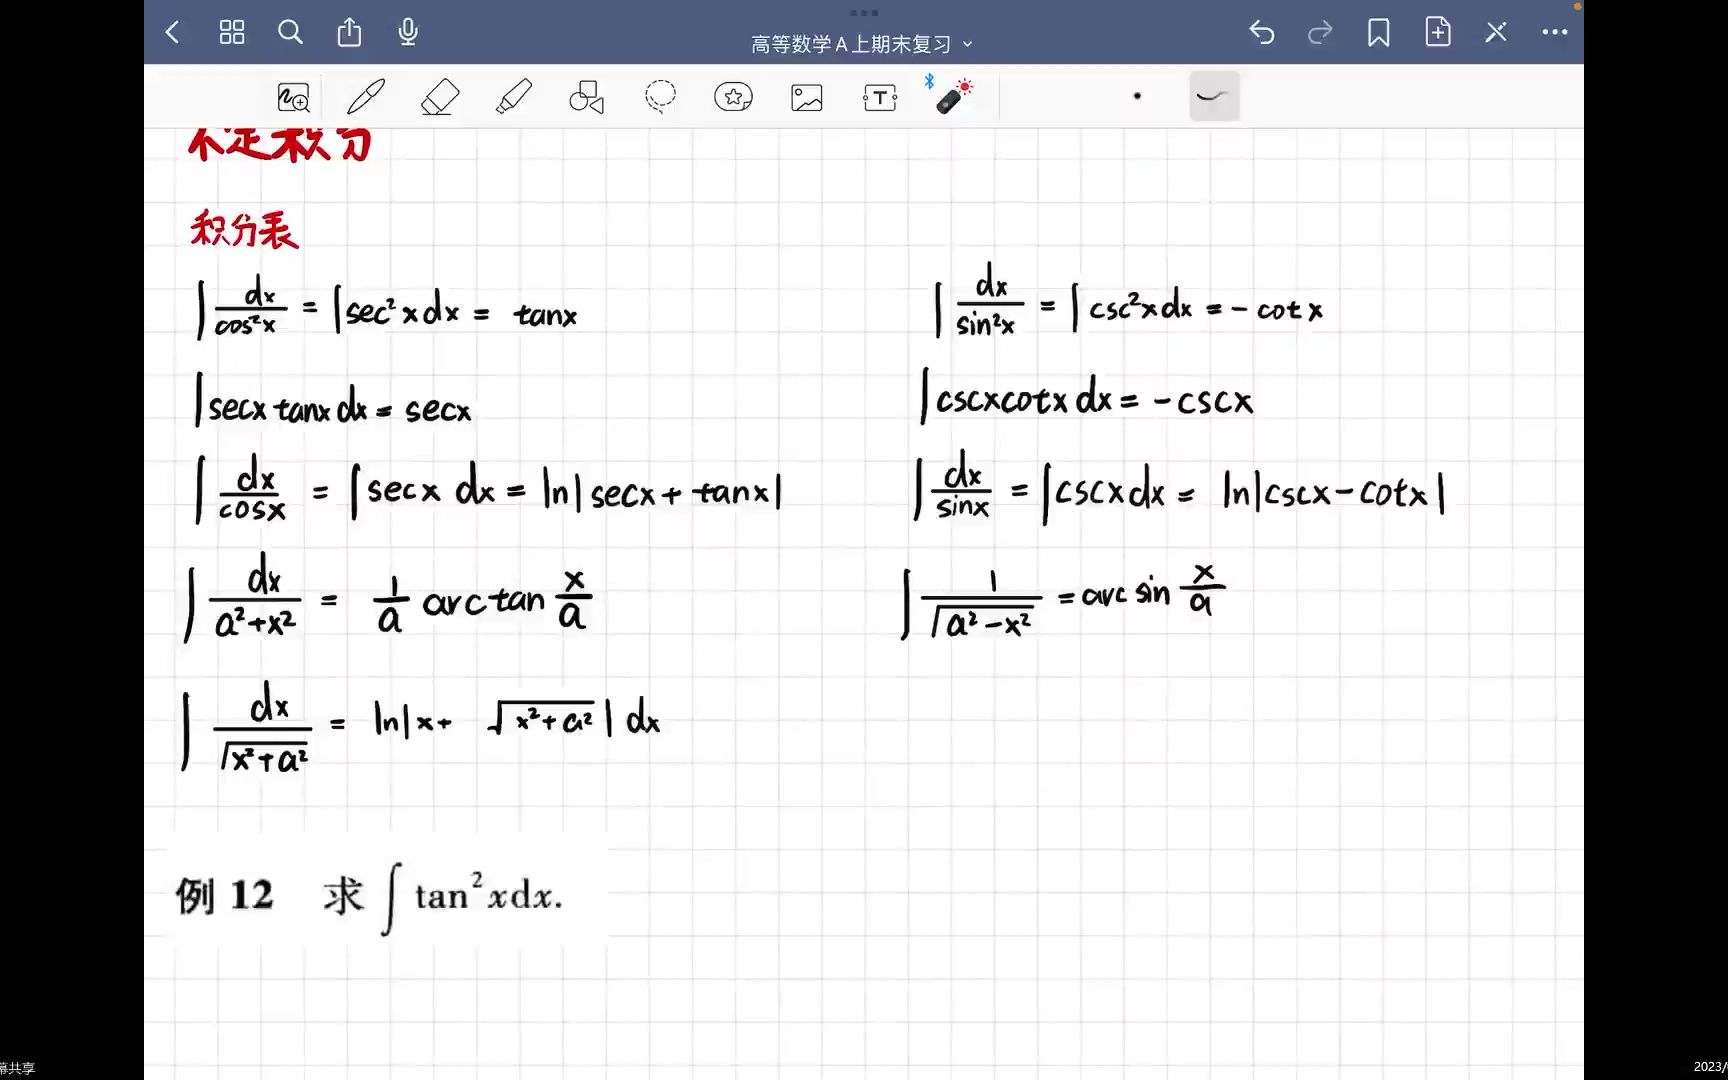 高等数学A上期末复习
不定积分
积分表
∫ dx/cos²x = ∫sec²x dx = tanx
∫ dx/sin²x = ∫csc²xdx = -cotx
∫secx tanx dx = secx
∫cscxcotx dx = -cscx
∫ dx/cosx = ∫secx dx = ln|secx + tanx|
∫ dx/sinx = ∫cscxdx = ln|cscx-cotx|
∫ dx/(a²+x²) = 1/a arctan x/a
∫ 1/√(a²-x²) = arcsin x/a
∫ dx/√(x²+a²) = ln|x+ √(x²+a²)| dx
例 12 求∫tan²xdx.
幕共享
2023/